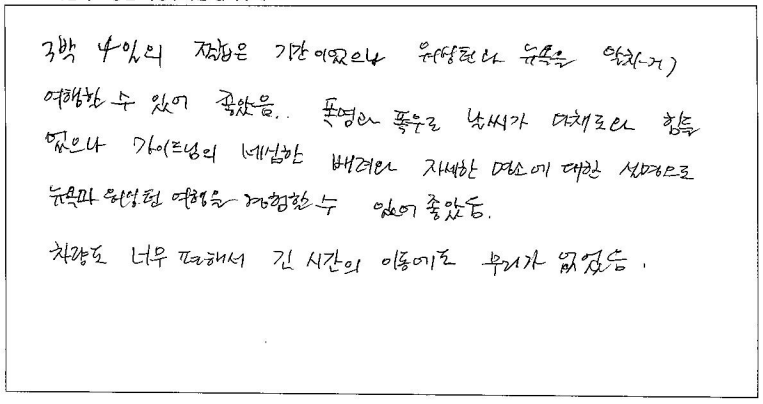 3박 4일의 짧은 기간이었으나 워싱턴과 뉴욕을 알차게
여행할 수 있어 좋았음. 폭염과 폭우로 날씨가 다채로와 힘들
었으나 가이드님의 세심한 배려와 자세한 명소에 대한 설명으로
뉴욕과 워싱턴 여행을 경험할 수 있어 좋았음.
차량도 너무 편해서 긴 시간의 이동에도 무리가 없었음.